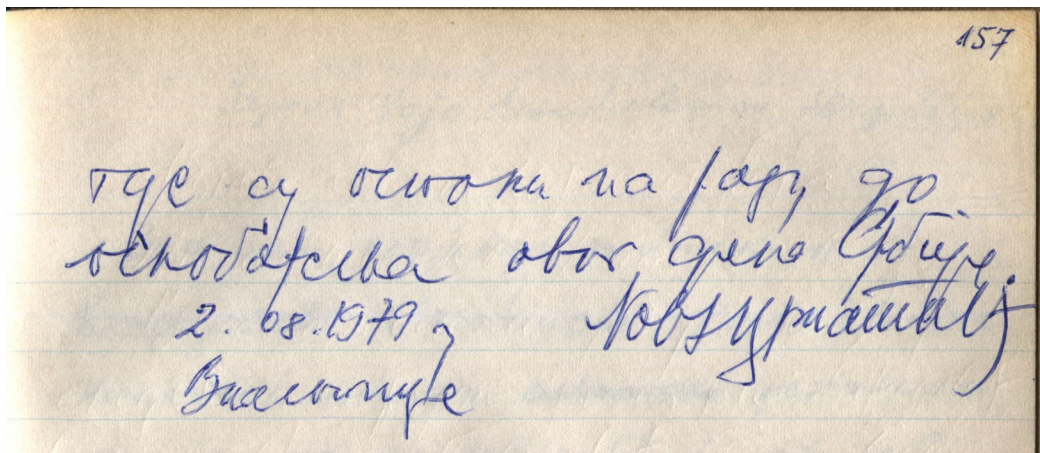 157
где су остали на раду до
ослобођења овог дела Србије.
2. 08. 1979